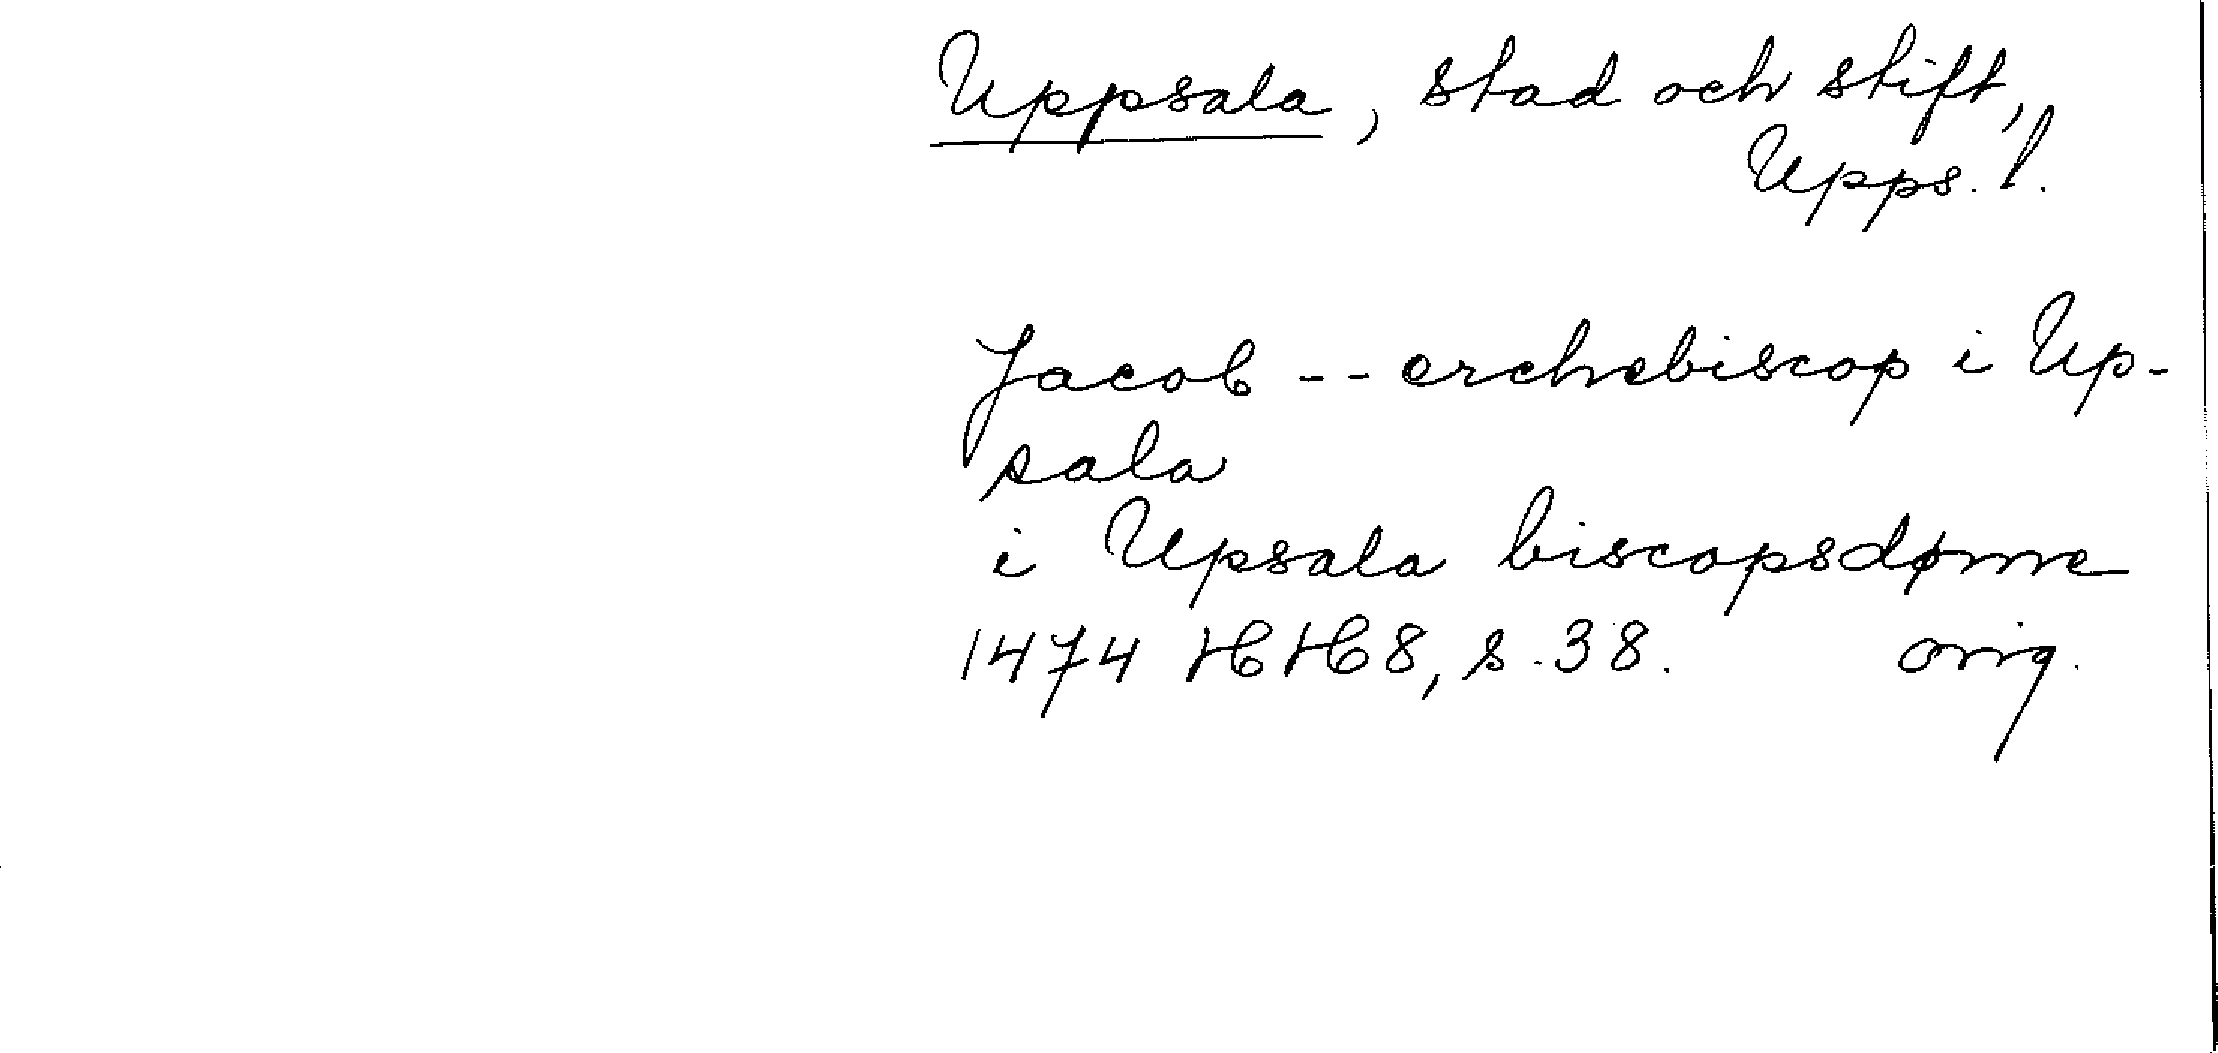 Uppsala, stad och stift,
Upps. l.
Jacob -- erchebiscop i Up-
sala
i Upsala biscopsdøme
1474 HH 8, s. 38. orig.